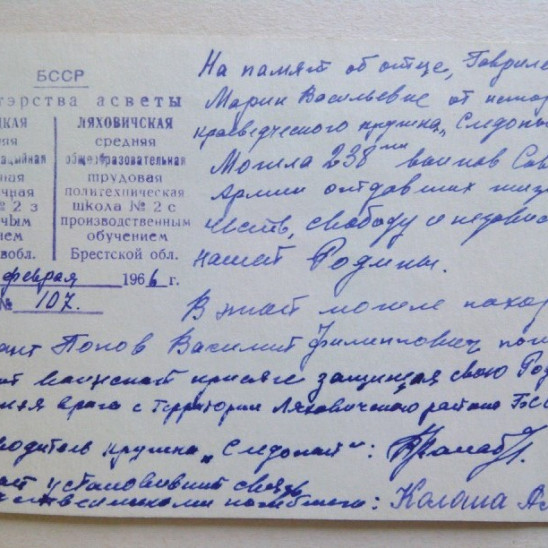 БССР
тэрства асветы
ЦКАЯ ЛЯХОВИЧСКАЯ
няя средняя
ацыйная общеобразовательная
ная трудовая
ічная политехническая
№ 2 з школа № 2 с
чым производственным
нем обучением
вобл. Брестской обл.
февраля 1966 г.
№ 107.
На память об отце, Гаврил
Марии Васильевне от истор
краеведческого кружка „Следоп
Могила 238 ми воинов Сов
Армии отдавших жиз
честь, свободу и независ
нашей Родины.
В этой могиле похор
ант Попов Василий Филиппович пог
воинской присяге защищая свою Род
врага с территории Ляховичского района БСС
водитель кружка „Следопыт“:
установивший связь
погибшего: Колоша Ал